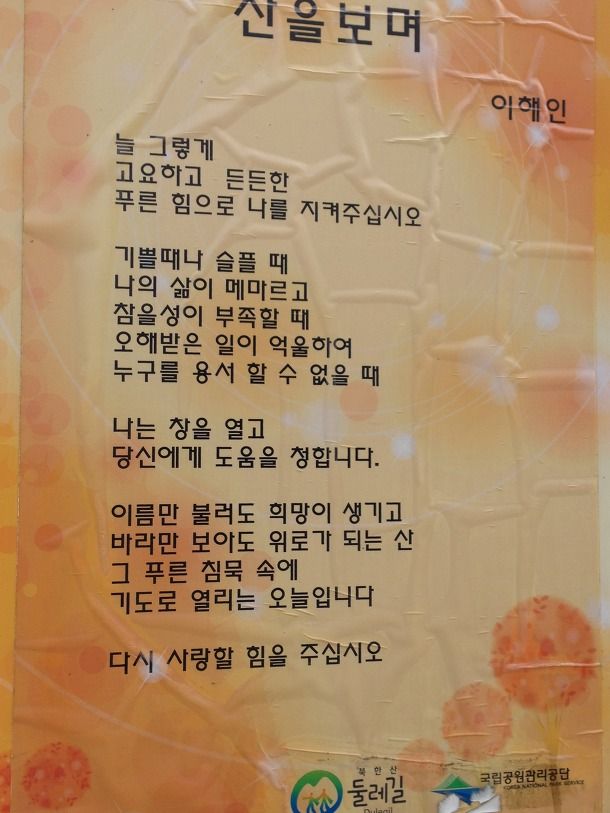 산을보며
이해인
늘 그렇게
고요하고 든든한
푸른 힘으로 나를 지켜주십시오
기쁠때나 슬플 때
나의 삶이 메마르고
참을성이 부족할 때
오해받은 일이 억울하여
누구를 용서 할 수 없을 때
나는 창을 열고
당신에게 도움을 청합니다.
이름만 불러도 희망이 생기고
바라만 보아도 위로가 되는 산
그 푸른 침묵 속에
기도로 열리는 오늘입니다
다시 사랑할 힘을 주십시오
북한산
둘레길
Dulegil
국립공원관리공단
KOREA NATIONAL PARK SERVICE